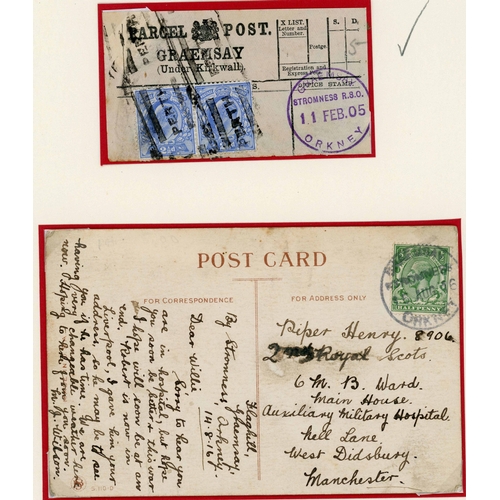 PARCEL POST.
GRAEMSAY
(Under Kirkwall)
X LIST.
Letter and
Number.
S. D.
Postage
5
Registration and
Express Fee
S. OFFICE STAMP.
STROMNESS R.S.O.
11 FEB.05
ORKNEY
POST CARD
FOR CORRESPONDENCE
FOR ADDRESS ONLY
HALFPENNY
ORKNEY
Piper Henry. 8906
2nd Royal Scots.
6 M. B. Ward.
Main House.
Auxiliary Military Hospital.
Nell Lane
West Didsbury.
Manchester.
Graemsay,
By Stromness, Orkney.
14-8-16
Dear Willie
Sorry to hear you
are in hospital, but hope
you soon be better & this war
I hope will soon be at an
end. Robert is now in
Liverpool, I gave him your
address, so he may be to see
you if he has time. We are
having very changeable weather here
now. Hoping to hear from you soon.
M. J. Wilson